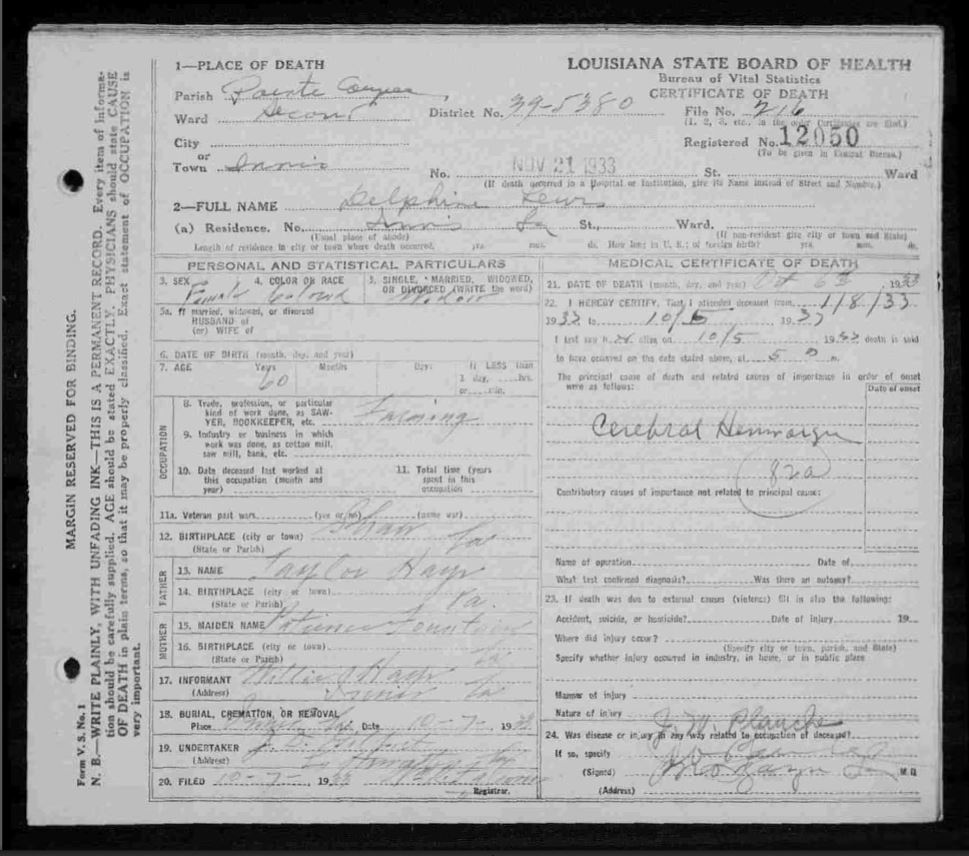 MARGIN RESERVED FOR BINDING.
N. B.—WRITE PLAINLY, WITH UNFADING INK—THIS IS A PERMANENT RECORD. Every item of informa-
tion should be carefully supplied. AGE should be stated EXACTLY. PHYSICIANS should state CAUSE
OF DEATH in plain terms, so that it may be properly classified. Exact statement of OCCUPATION is
very important.
Form V. S. No. 1
LOUISIANA STATE BOARD OF HEALTH
Bureau of Vital Statistics
CERTIFICATE OF DEATH
1—PLACE OF DEATH
Parish Pointe Coupee
Ward Second
District No. 39-5380
File No. 216
(1, 2, 3, etc. in the order Certificates are filed.)
City
Registered No. 12050
(To be given in Central Bureau.)
or
Town Innis
NOV 21 1933
No. St. Ward
(If death occurred in a Hospital or Institution, give its Name instead of Street and Number.)
2—FULL NAME Delphine Lewis
(a) Residence. No. Innis La St., Ward.
(Usual place of abode) (If non-resident give city or town and State)
Length of residence in city or town where death occurred. yrs. mos. ds. How long in U. S.; of foreign birth? yrs. mos. ds.
PERSONAL AND STATISTICAL PARTICULARS
3. SEX Female 4. COLOR OR RACE Colored 5. SINGLE, MARRIED, WIDOWED, OR DIVORCED (WRITE the word) Widow
5a. If married, widowed, or divorced
HUSBAND of
(or) WIFE of
6. DATE OF BIRTH (month, day, and year)
7. AGE Years 60 Months Days If LESS than 1 day, hrs. or min.
OCCUPATION
8. Trade, profession, or particular kind of work done, as SAWYER, BOOKKEEPER, etc. Farming
9. Industry or business in which work was done, as cotton mill, saw mill, bank, etc.
10. Date deceased last worked at this occupation (month and year)
11. Total time (years spent in this occupation
11a. Veteran past wars (yes or no) (name war)
12. BIRTHPLACE (city or town) Shaw
(State or Parish) La
FATHER
13. NAME Taylor Hayr
14. BIRTHPLACE (city or town)
(State or Parish) Va.
MOTHER
15. MAIDEN NAME
16. BIRTHPLACE (city or town)
(State or Parish) La
17. INFORMANT Willie Hayr
(Address) Innis La
18. BURIAL, CREMATION, OR REMOVAL
Place Date 10-7- 1933
19. UNDERTAKER
(Address)
20. FILED 10-7- 1933
Registrar.
MEDICAL CERTIFICATE OF DEATH
21. DATE OF DEATH (month, day, and year) Oct 6th, 1933
22. I HEREBY CERTIFY, That I attended deceased from 1/8/33
1933 to 10/5, 1933
I last saw h er alive on 10/5 1933 death is said
to have occurred on the date stated above, at 5 P m.
The principal cause of death and related causes of importance in order of onset
were as follows:
Date of onset
Cerebral
82a
Contributory causes of importance not related to principal cause:
Name of operation Date of
What test confirmed diagnosis? Was there an autopsy?
23. If death was due to external causes (violence) fill in also the following:
Accident, suicide, or homicide? Date of injury 19
Where did injury occur?
(Specify city or town, parish, and State)
Specify whether injury occurred in industry, in home, or in public place
Manner of injury
Nature of injury
J. M. Planche
24. Was disease or injury in any way related to occupation of deceased?
If so, specify
(Signed) M. D.
(Address)